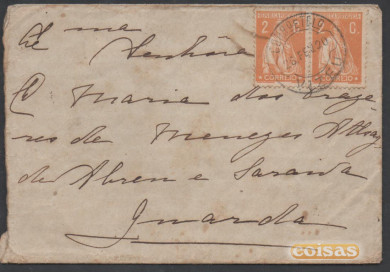 Ex ma
Senhora
D Maria dos Praze
res de Menezes
de Abreu e Saraiva
Guarda
2 C.
CORREIO CORREIO
coisas